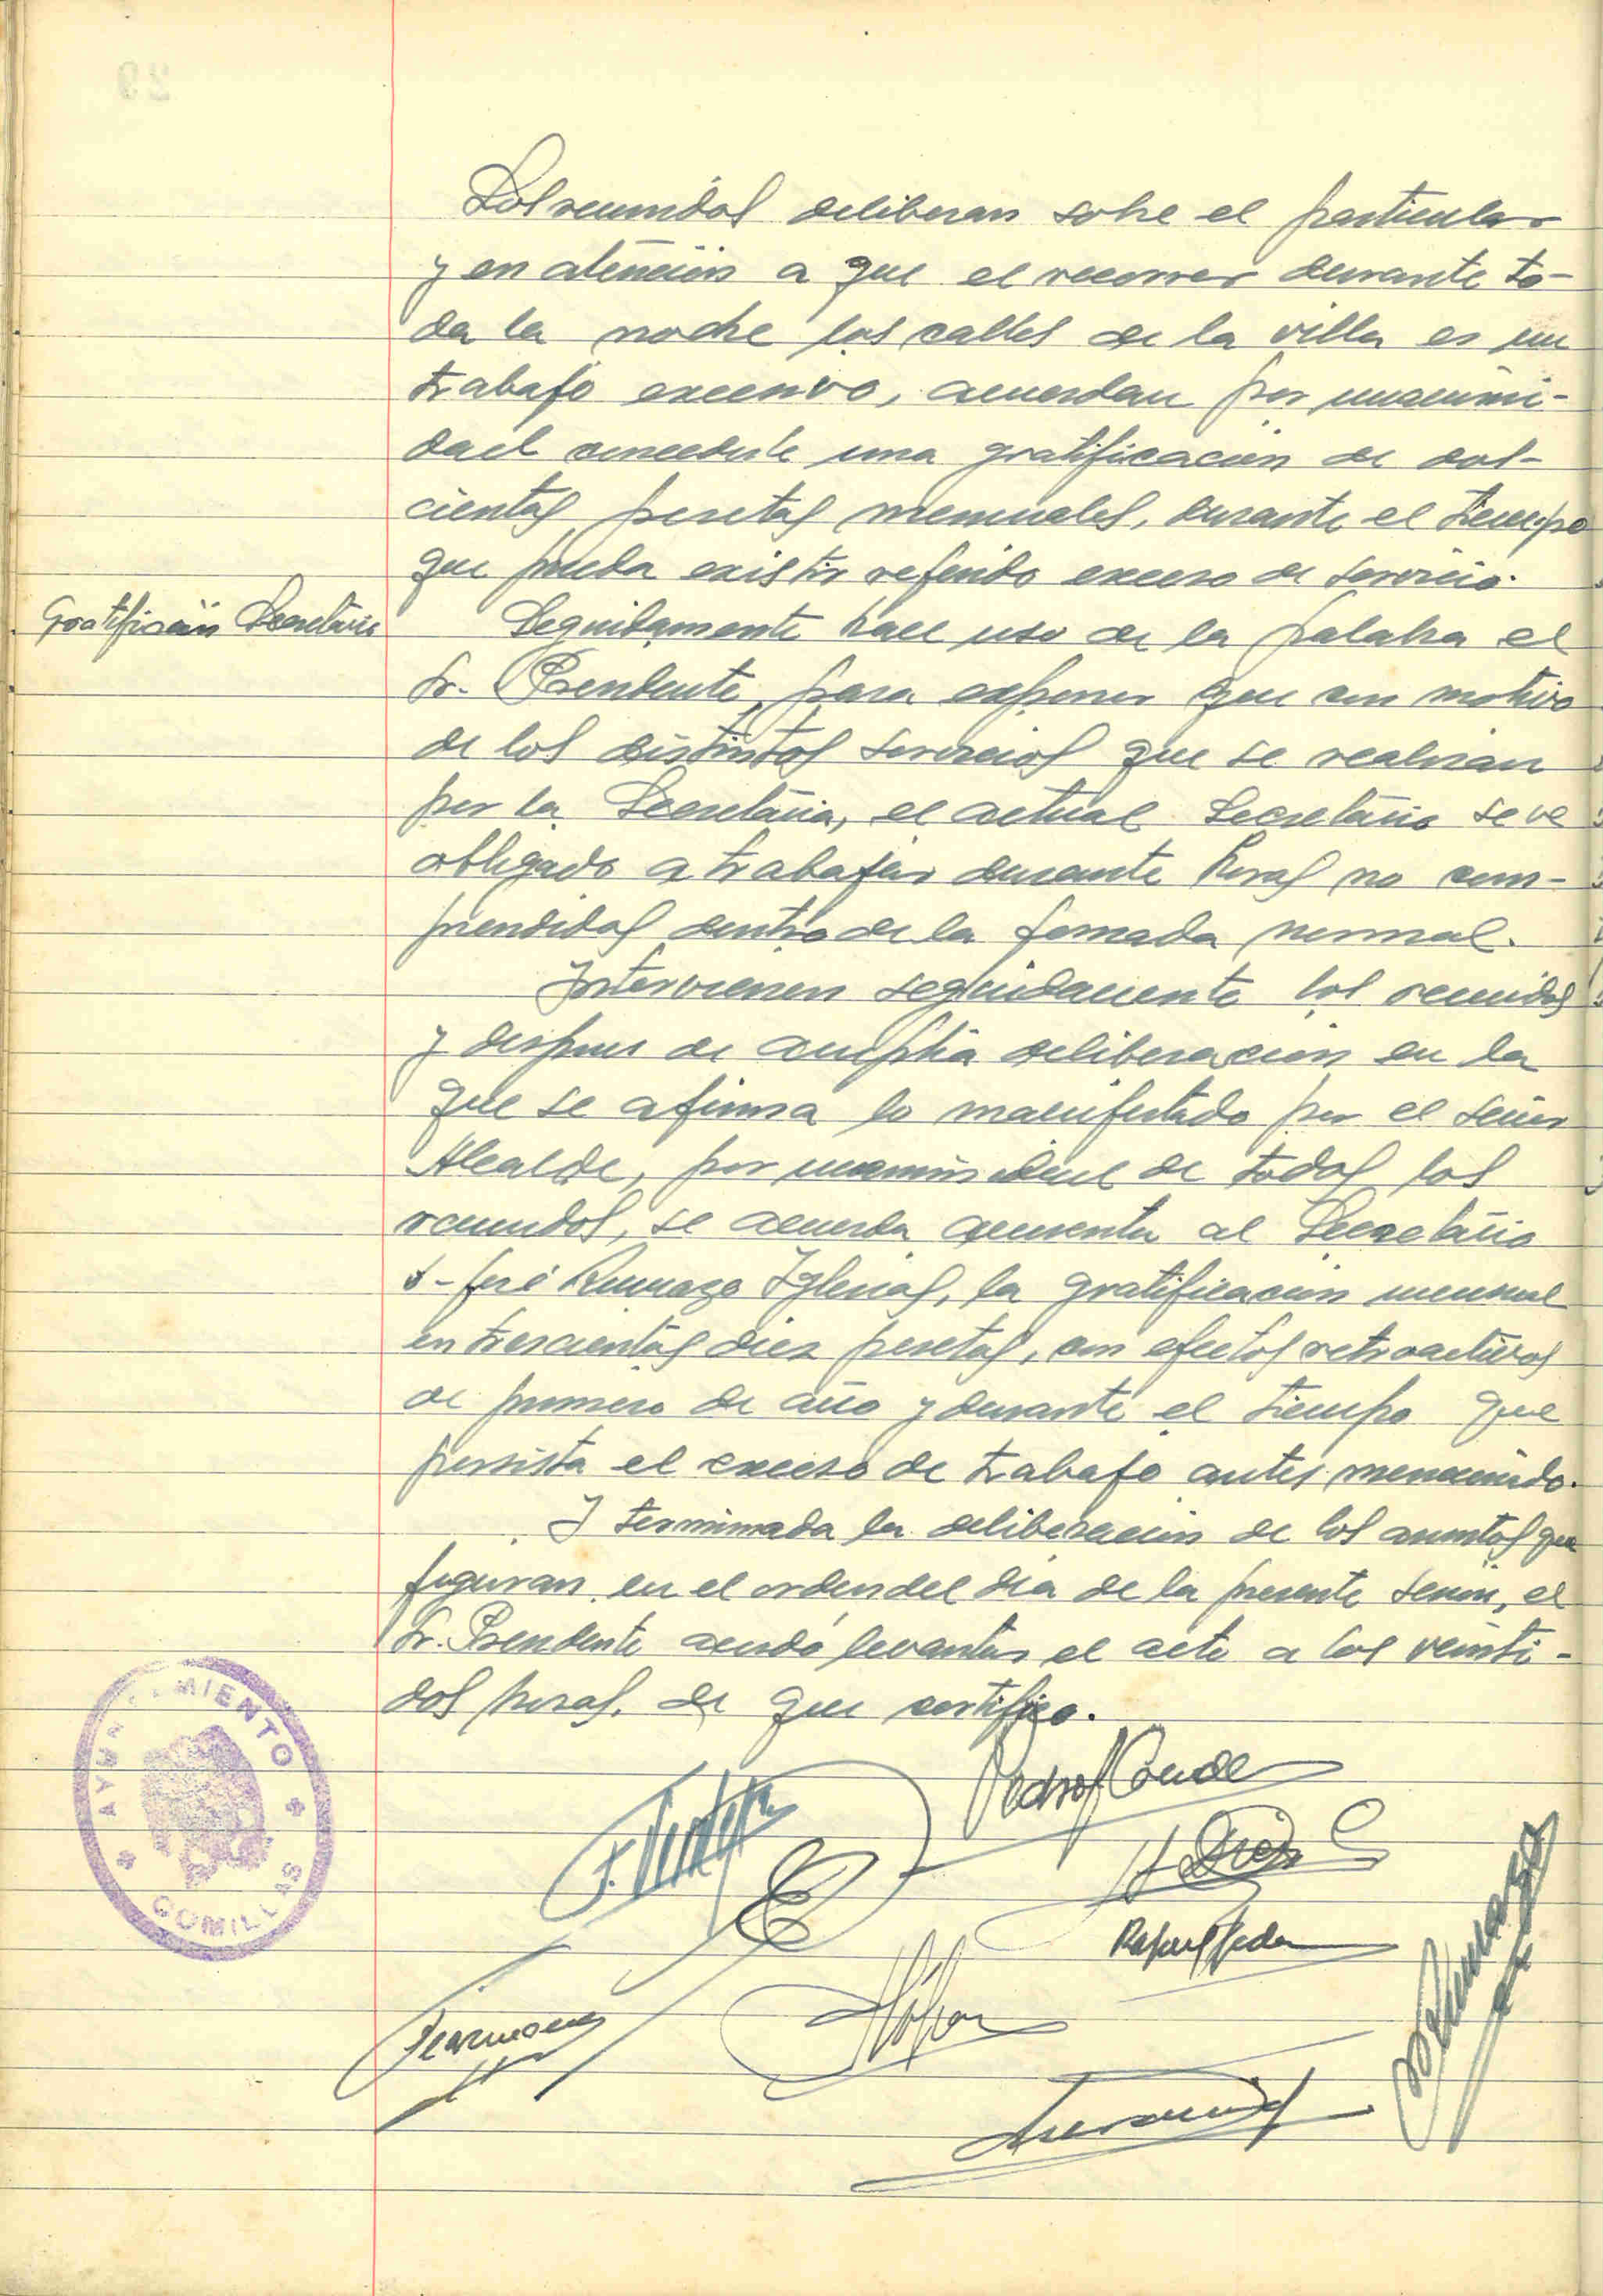 Los reunidos deliberan sobre el particular
y en atención a que el recorrer durante to-
da la noche las calles de la villa es un
trabajo excesivo, acuerdan por unanimi-
dad concederle una gratificación de dos-
cientas pesetas mensuales, durante el tiempo
que pueda existir referido exceso de servicio.
Gratificación Secretario
Seguidamente hace uso de la palabra el
Sr. Presidente, para exponer que con motivo
de los distintos servicios que se realizan
por la Secretaría, el actual Secretario se ve
obligado a trabajar durante horas no com-
prendidas dentro de la jornada normal.
Intervienen seguidamente los reunidos
y despues de amplia deliberación en la
que se afirma lo manifestado por el señor
Alcalde, por unanimidad de todos los
reunidos, se acuerda aumentar al Secretario
D. José Rumazo Iglesias, la gratificación mensual
en trescientas diez pesetas, con efectos retroactivos
de primero de año y durante el tiempo que
persista el exceso de trabajo antes mencionado.
Y terminada la deliberación de los asuntos que
figuran en el orden del día de la presente sesión, el
Sr. Presidente acordó levantar el acto a las veinti-
dos horas, de que certifico.
AYUNTAMIENTO
COMILLAS
Pedro Conde
Rumazo
29